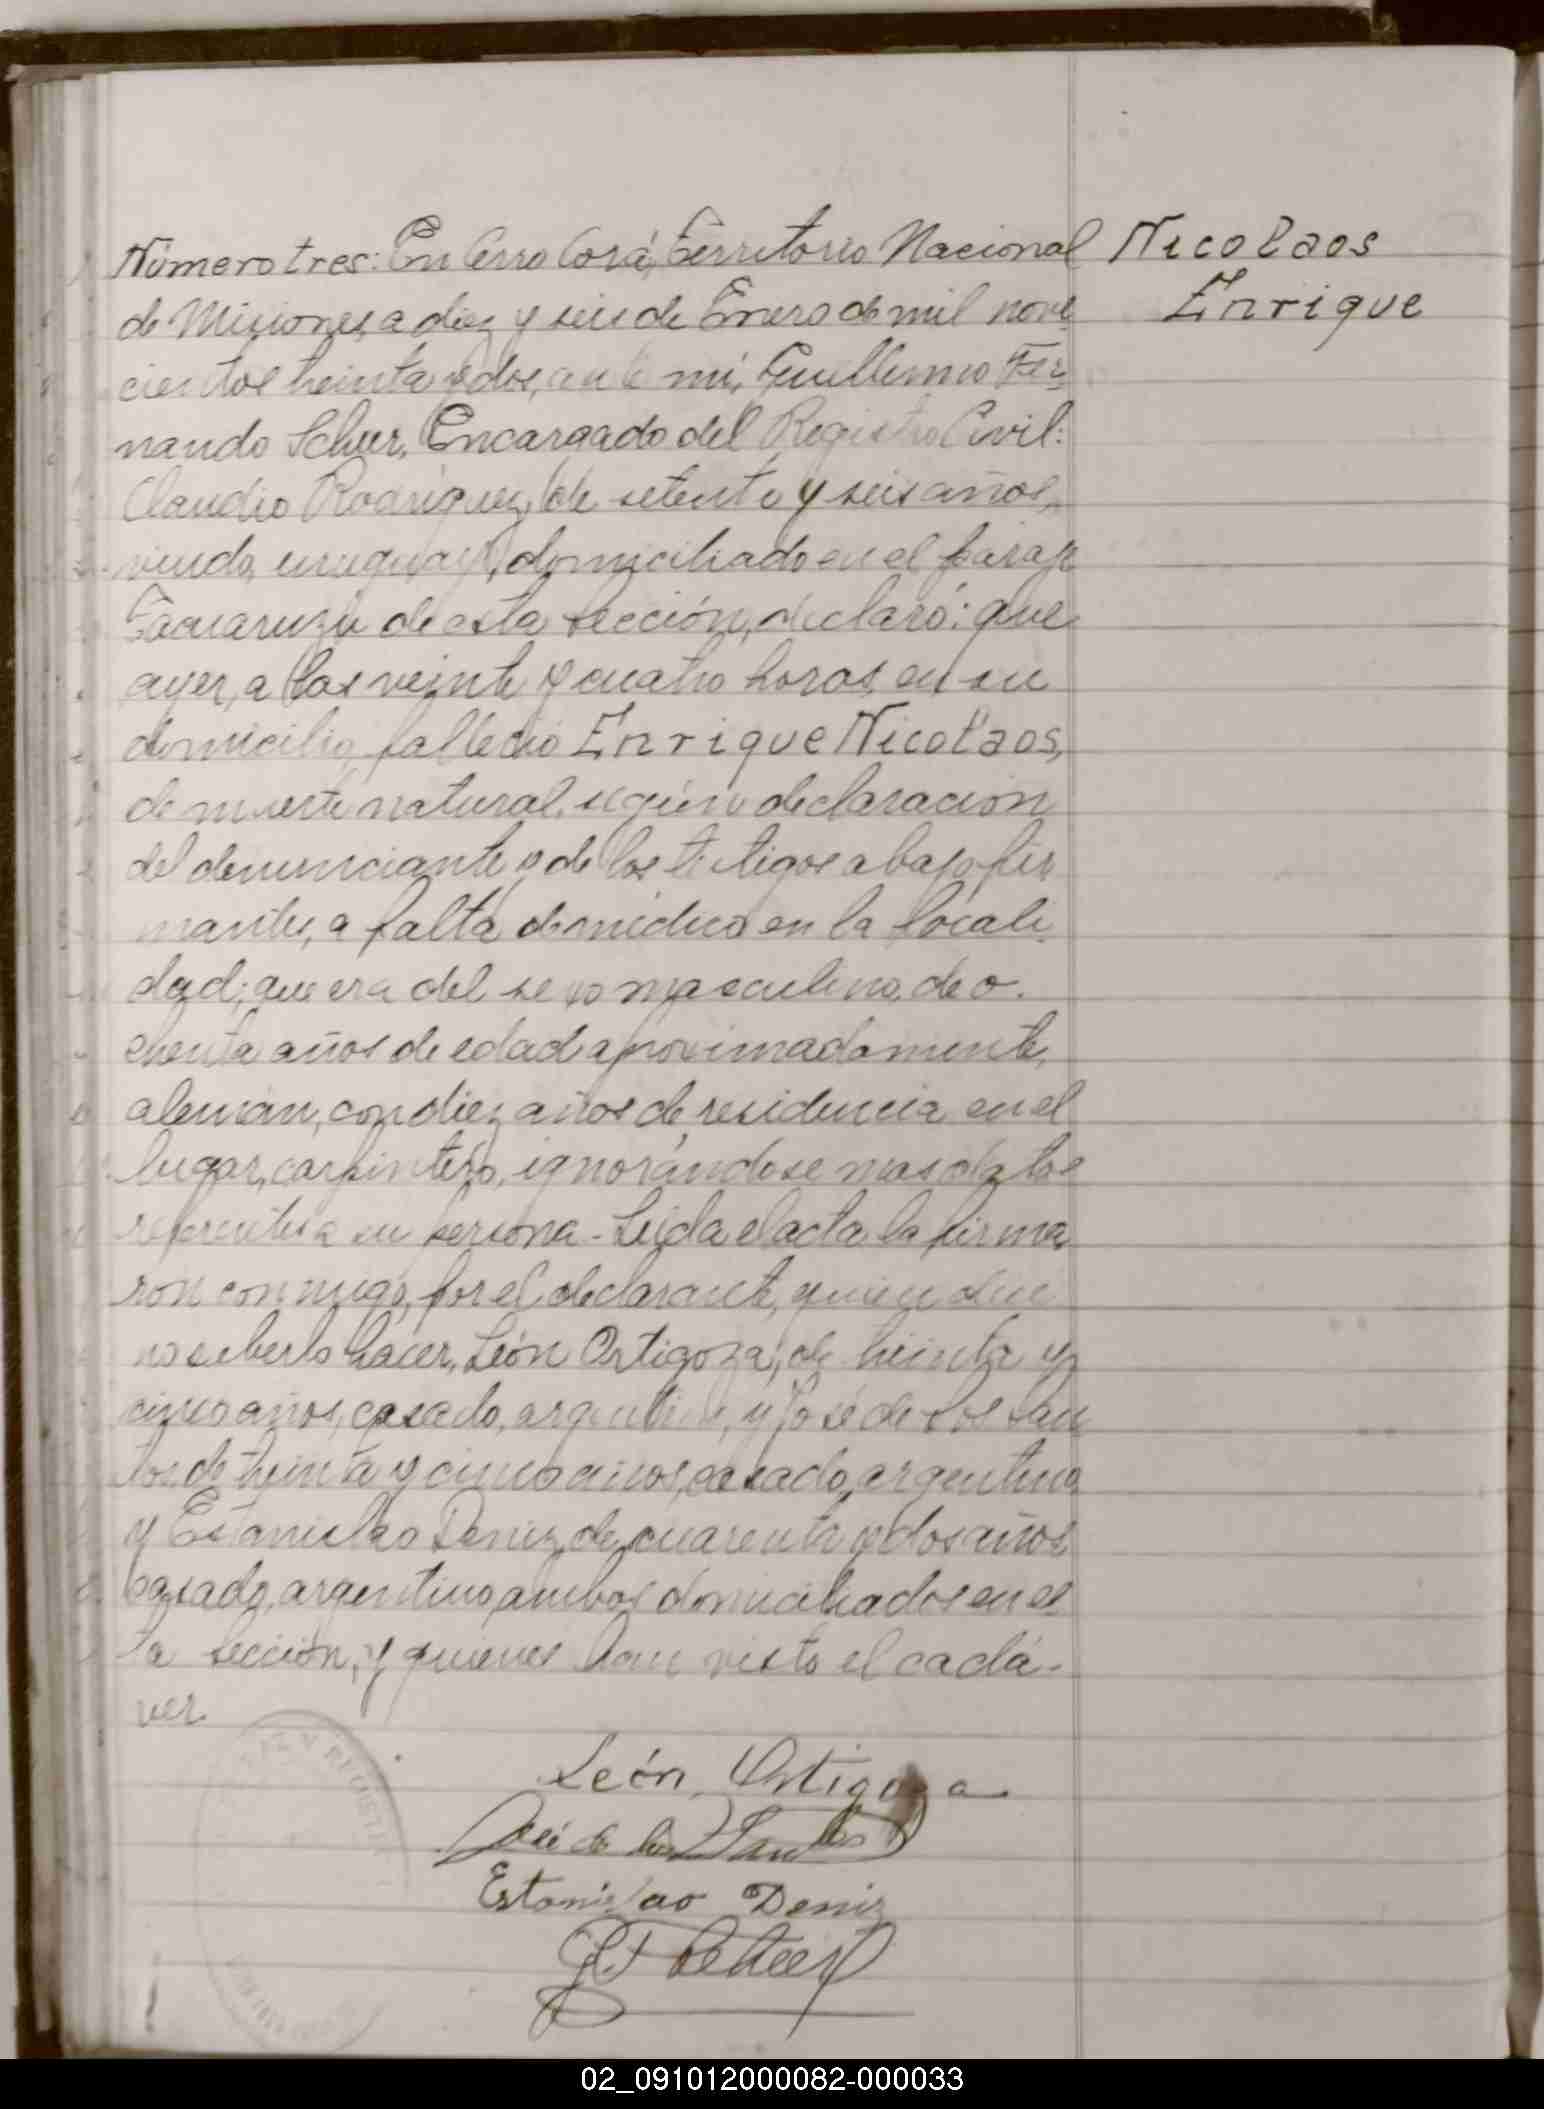 Número tres: En Cerro Corá, Territorio Nacional
Nicolaos
Enrique
de Misiones, a diez y seis de Enero de mil nove
cientos treinta y dos, ante mí, Guillermo Fer
nando Scheer, Encargado del Registro Civil:
Claudio Rodriguez, de setenta y seis años,
viudo, uruguayo, domiciliado en el paraje
Tacuaruzú de esta sección, declaró: que
ayer, a las veinte y cuatro horas, en su
domicilio, falleció Enrique Nicolaos,
de muerte natural, según declaración
del denunciante y de los testigos abajo fir
mantes, a falta de médico en la locali
dad; que era del sexo masculino, de o-
chenta años de edad aproximadamente,
alemán, con diez años de residencia en el
lugar, carpintero, ignorándose mas datos
referentes a su persona - Leída el acta la firma
ron conmigo, por el declarante, quien dice
no saberlo hacer, León Ortigoza, de treinta y
cinco años, casado, argentino, y José de los San
tos de treinta y cinco años, casado, argentino
y Estanislao Deniz de cuarenta y dos años
casado, argentino, ambos domiciliados en es
ta sección, y quienes han visto el cadá-
ver
León Ortigoza
José de los Santos
Estanislao Deniz
G F Scheer
02_091012000082-000033